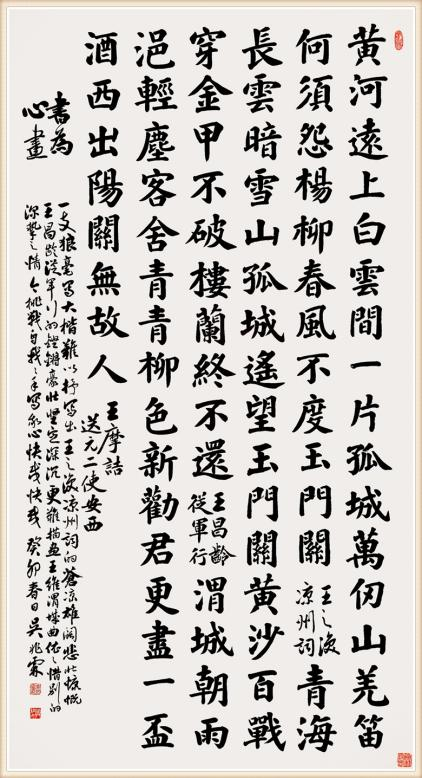 黃河遠上白雲間一片孤城萬仞山羌笛
何須怨楊柳春風不度玉門關
王之渙
涼州詞
青海
長雲暗雪山孤城遙望玉門關黃沙百戰
穿金甲不破樓蘭終不還
王昌齡
從軍行
渭城朝雨
浥輕塵客舍青青柳色新勸君更盡一盃
酒西出陽關無故人
王摩詰
送元二使安西
書為
心畫
一支狼毫寫大楷難以抒寫出王之渙涼州詞的蒼涼雄闊悲壯慷慨
王昌齡從軍行的鏗鏘豪壯堅定深沉更難描畫王維渭城曲依依惜別的
深摯之情今挑戰自我手寫我心快哉快哉癸卯春日吳兆霖